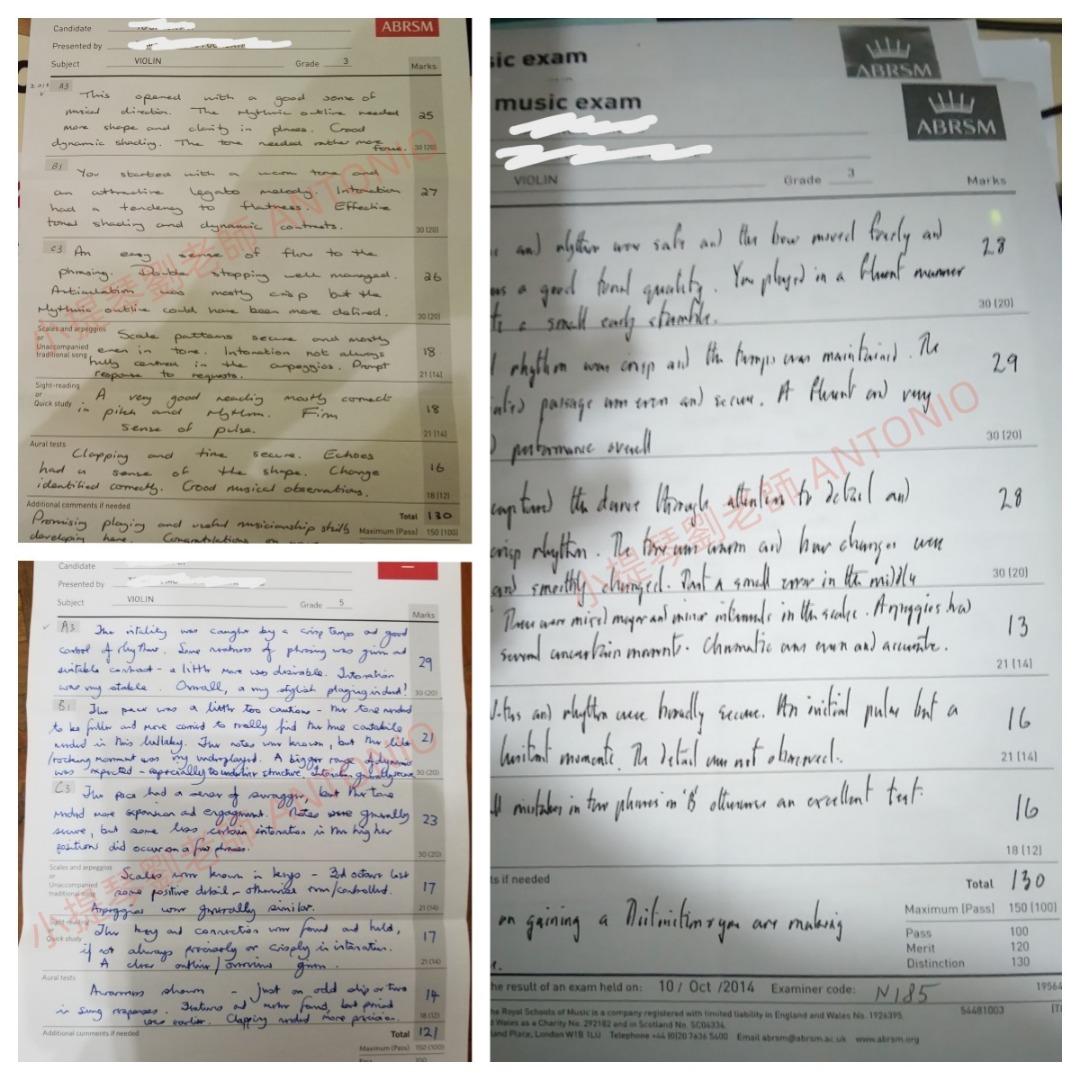 Candidate
ABRSM
Presented by
Subject VIOLIN Grade 3
Marks
A3 This opened with a good sense of
musical direction. The rhythmic outline needed
more shape and clarity in places. Good
dynamic shading. The tone needed rather more
focus.
25
30 (20)
B1 You started with a warm tone and
an attractive legato melody. Intonation
had a tendency to flatness. Effective
tonal shading and dynamic contrasts.
27
30 (20)
C3 An easy sense of flow to the
phrasing. Double stopping well managed.
Articulation was mostly crisp but the
rhythmic outline could have been more defined.
26
30 (20)
Scales and arpeggios
or
Unaccompanied
traditional song
Scale patterns secure and mostly
even in tone. Intonation not always
fully centred in the arpeggios. Prompt
response to requests.
18
21 (14)
Sight-reading
or
Quick study
A very good reading mostly correct
in pitch and rhythm. Firm
sense of pulse.
18
21 (14)
Aural tests
Clapping and time secure. Echoes
had a sense of the shape. Change
identified correctly. Good musical observations.
16
18 (12)
Additional comments if needed
Total 130
Promising playing and useful musicianship skills
Maximum (Pass) 150 (100)
developing here. Congratulations on
小提琴劉老師 ANTONIO
Candidate
Presented by
Subject VIOLIN Grade 5
Marks
A3 The vitality was caught by a crisp tempo and good
control of rhythm. Some neatness of phrasing was given and
suitable contrast - a little more was desirable. Intonation
was very stable. Overall, a very stylish playing indeed!
29
30 (20)
B1 The pace was a little too cautious - the tone needed
to be fuller and more carried to really find the true cantabile
needed in this lullaby. The notes were known, but the lilt
/rocking movement was very underplayed. A bigger range of dynamic
was expected - especially to underline structure.
21
30 (20)
C3 The pace had a sense of swagger, but the tone
needed more expansion and engagement. Notes were generally
secure, but some less certain intonation in the higher
positions did occur on a few phrases.
23
30 (20)
Scales and arpeggios
or
Unaccompanied
traditional song
Scales were known in keys - 3rd octave lost
some positive detail - otherwise even/controlled.
Arpeggios were generally similar.
17
21 (14)
Sight-reading
or
Quick study
The key and connection were found and held,
if not always precisely or crisply in intonation.
A clear outline/overview given.
17
21 (14)
Aural tests
Awareness shown - just an odd slip or two
in sung responses. Features and metre found, but period
was earlier. Clapping needed more precision.
14
18 (12)
Additional comments if needed
Total 121
Maximum (Pass) 150 (100)
小提琴劉老師 ANTONIO
sic exam
ABRSM
music exam
ABRSM
VIOLIN Grade 3
Marks
and rhythm were safe and the bow moved freely and
a good tonal quality. You played in a fluent manner
a small early stumble.
28
30 (20)
rhythm was crisp and the tempo was maintained. The
passage was even and secure. A fluent and very
performance overall
29
30 (20)
captured the dance through attention to detail and
crisp rhythm. The tone was warm and bow changes were
and smoothly changed. Just a small error in the middle
28
30 (20)
There were mixed major and minor intervals in the scales. Arpeggios had
several uncertain moments. Chromatic was even and accurate.
13
21 (14)
and rhythm were broadly secure. An initial pulse but a
hesitant moments. The detail was not observed.
16
21 (14)
mistakes in two phrases in 'B' otherwise an excellent test.
16
18 (12)
ts if needed
Total 130
Maximum (Pass) 150 (100)
on gaining a Distinction you are making
Pass 100
Merit 120
Distinction 130
he result of an exam held on: 10/Oct/2014 Examiner code: N185
19564
he Royal Schools of Music is a company registered with limited liability in England and Wales No. 1926395
54481003
d Wales as a Charity No. 292182 and in Scotland No. SC04334
and Place, London W1B 1LU Telephone +44 (0)20 7636 5400 Email abrsm@abrsm.ac.uk www.abrsm.org
小提琴劉老師 ANTONIO